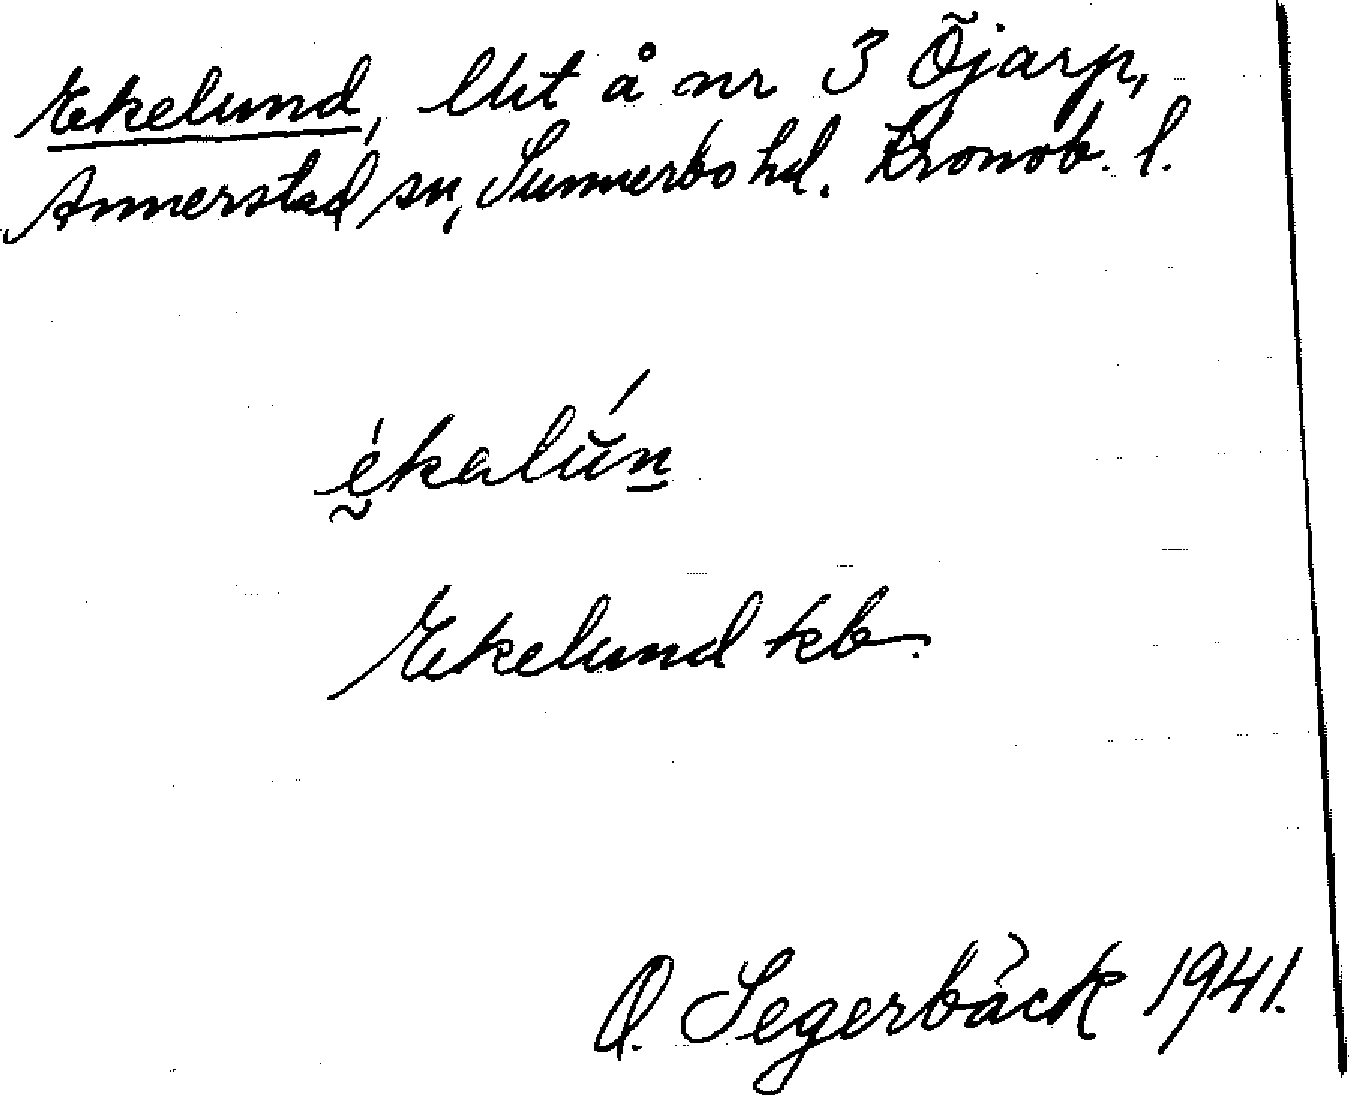 Ekelund, Utt å nr 3 Öjarp,
Annerstad sn, Sunnerbo hd. Kronob. l.
ékalún
Ekelund kb.
O. Segerbäck 1941.